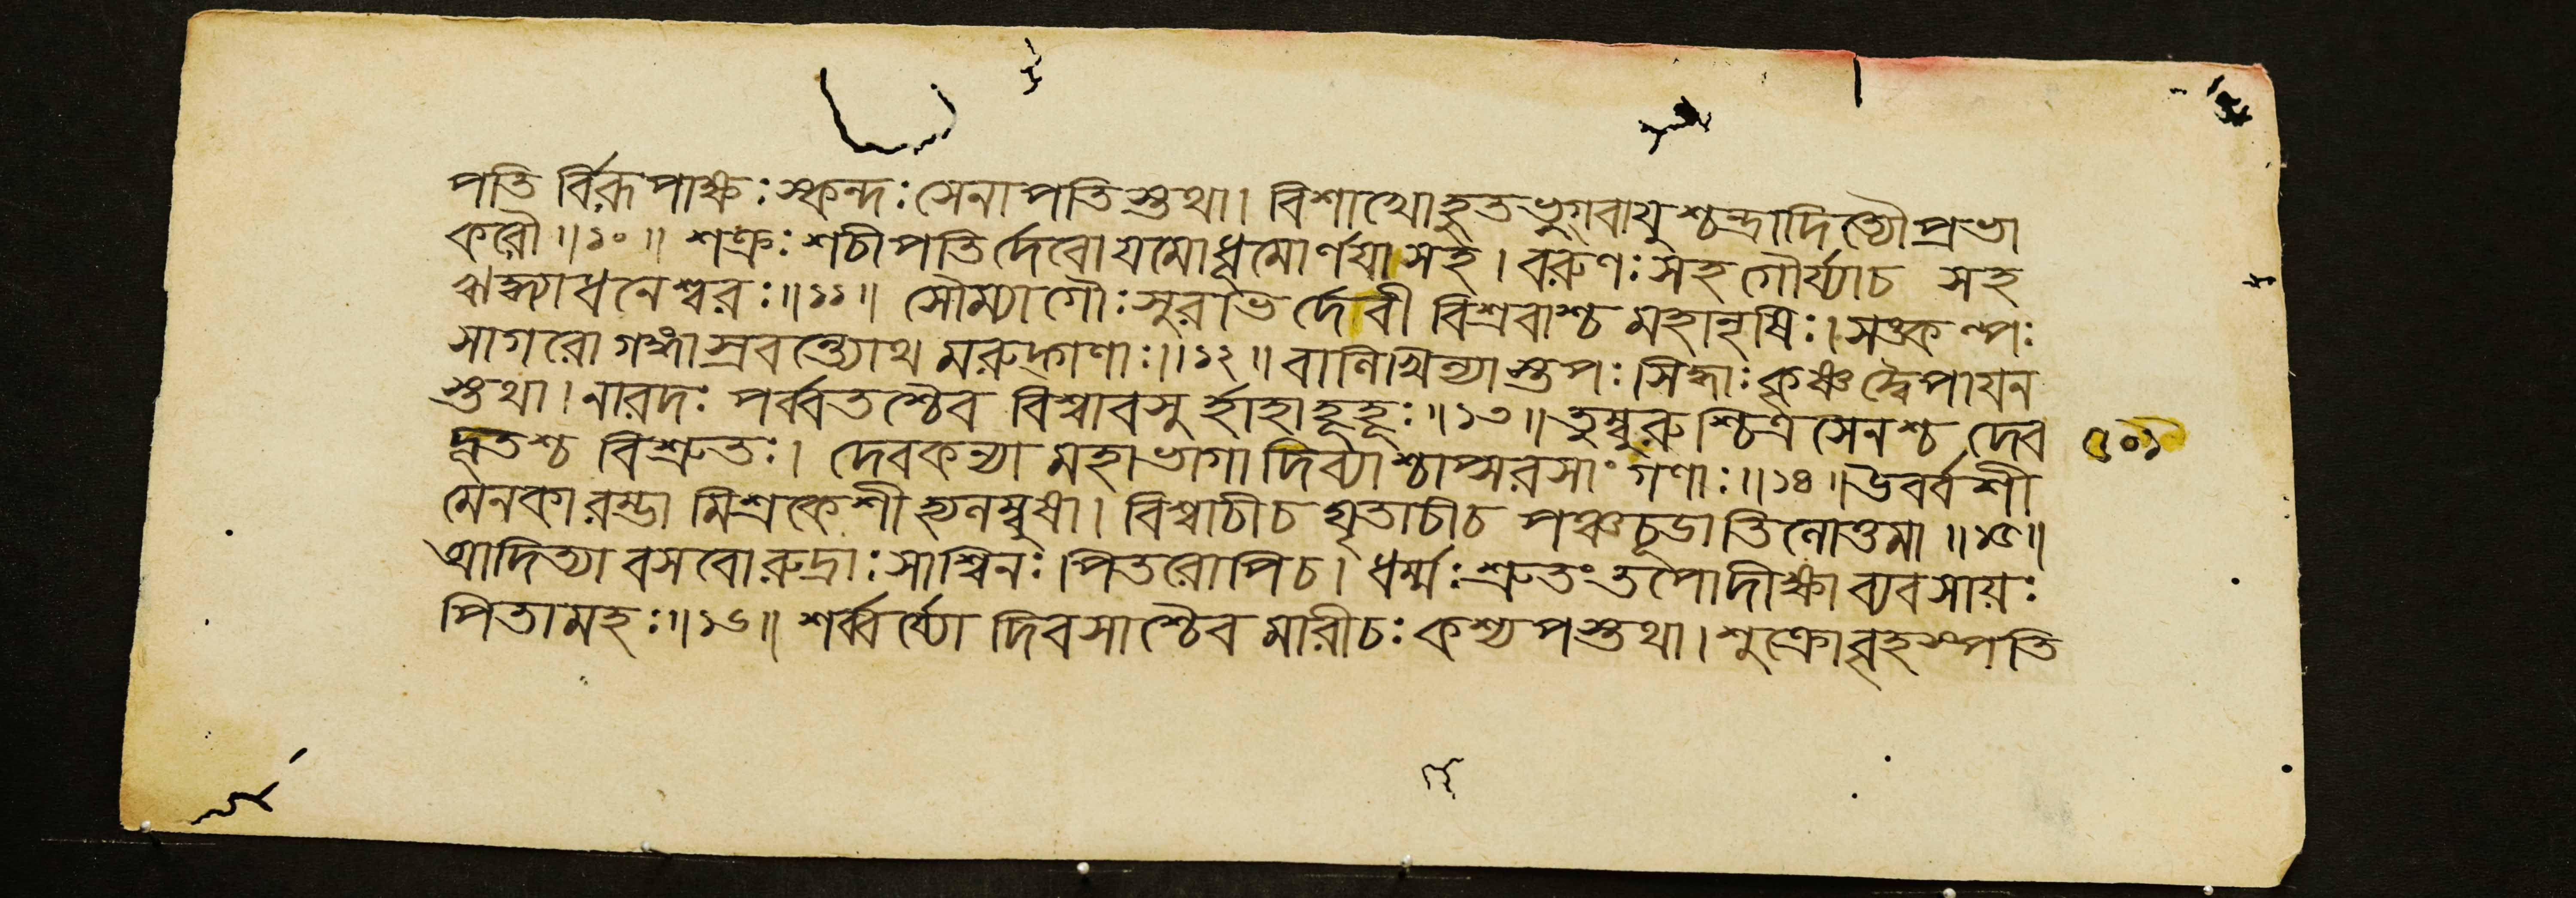 পতি র্বিরূপাক্ষঃ স্কন্দঃ সেনাপতিস্তথা। বিশাখোহুতভুগ্বাযুশ্চন্দ্রাদিত্যৌপ্রভা
করৌ॥১০॥ শক্রঃ শচীপতির্দেবোযমোধূমোর্ণযাসহ। বরুণঃ সহগৌর্য্যাচ সহ
ঋদ্ধ্যাধনেশ্বরঃ॥১১॥ সৌম্যাগৌঃ সুরভির্দেবী বিশ্রবাশ্চ মহানৃষিঃ। সঙ্কল্পঃ
সাগরোগঙ্গাস্রবন্ত্যোথ মরুদ্গণাঃ॥১২॥ বালিখিল্যাস্তপঃ সিদ্ধাঃ কৃষ্ণদ্বৈপাযন
স্তথা। নারদঃ পর্ব্বতশ্চৈব বিশ্বাবসুর্হাহাহূহূঃ॥১৩॥ তুম্বুরুশ্চিত্রসেনশ্চ দেব
দূতশ্চ বিশ্রুতঃ। দেবকন্যা মহাভাগা দিব্যাশ্চাপ্সরসাং গণাঃ॥১৪॥ উবর্বশী
মেনকারম্ভা মিশ্রকেশীহ্যলম্বুষা। বিশ্বাচীচ ঘৃতাচীচ পঞ্চচূডাতিলোত্তমা॥১৫॥
আদিত্যাবসবোরুদ্রাঃ সাশ্বিনঃ পিতরোপিচ। ধর্ম্মঃ শ্রুতং তপোদীক্ষা ব্যবসায়ঃ
পিতামহঃ॥১৬॥ শর্ব্বর্য্যো দিবসাশ্চৈব মারীচঃ কশ্যপস্তথা। শুক্রোবৃহস্পতি